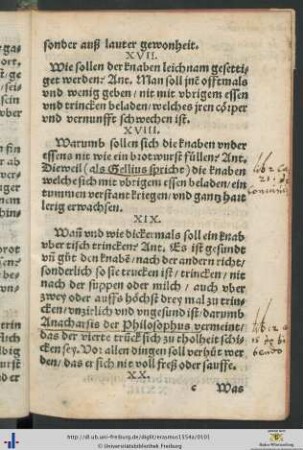 sonder auß lauter gewonheit.
XVII.
Wie sollen der knaben leichnam gesetti-
get werden? Ant. Man soll jnē offtmals
vnd wenig geben / nit mit vbrigem essen
vnd trincken beladen / welches jren cörper
vnd vernunfft schwechen ist.
XVIII.
Warumb sollen sich die knaben vnder
essens nit wie ein brotwurst füllen? Ant.
Dieweil (als Gellius spricht) die knaben
welche sich mit vbrigem essen beladen / ein
tummen verstant kriegen / vnd gantz hait
lerig erwachsen.
XIX.
Wañ vnd wie dickermals soll ein knab
vber tisch trincken? Ant. Es ist gesundt
vñ gůt den knabē / nach der andern richt /
sonderlich so sie trucken ist / trincken / nit
nach der suppen oder milch / auch vber
zwey oder auffs höchst drey mal zu trin-
cken / vnzirlich vnd vngesund ist / darumb
Anacharsis der Philosophus vermeint /
das der vierte trück sich zu tholheit schi-
cken sey. Vor allen dingen soll verhüt wer
den / das er sich nit voll freß oder sauffe.
XX.
c Was
http://dl.ub.uni-freiburg.de/diglit/erasmus1554a/0101
Universitätsbibliothek Freiburg
Baden-Württemberg